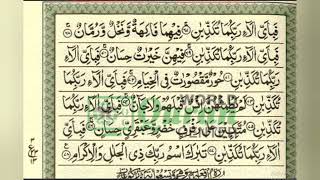 فَبِأَيِّ آلَاءِ رَبِّكُمَا تُكَذِّبٰنِ فِيْهِمَا فَاكِهَةٌ وَّنَخْلٌ وَّرُمَّانٌ
فَبِأَيِّ آلَاءِ رَبِّكُمَا تُكَذِّبٰنِ فِيْهِنَّ خَيْرٰتٌ حِسَانٌ فَبِأَيِّ آلَاءِ رَبِّكُمَا
تُكَذِّبٰنِ حُوْرٌ مَّقْصُوْرٰتٌ فِي الْخِيَامِ فَبِأَيِّ آلَاءِ رَبِّكُمَا
تُكَذِّبٰنِ لَمْ يَطْمِثْهُنَّ إِنْسٌ قَبْلَهُمْ وَلَا جَانٌّ فَبِأَيِّ آلَاءِ رَبِّكُمَا
تُكَذِّبٰنِ مُتَّكِـِٕيْنَ عَلٰى رَفْرَفٍ خُضْرٍ وَّعَبْقَرِيٍّ حِسَانٍ فَبِأَيِّ
آلَاءِ رَبِّكُمَا تُكَذِّبٰنِ تَبٰرَكَ اسْمُ رَبِّكَ ذِي الْجَلٰلِ وَالْإِكْرَامِ